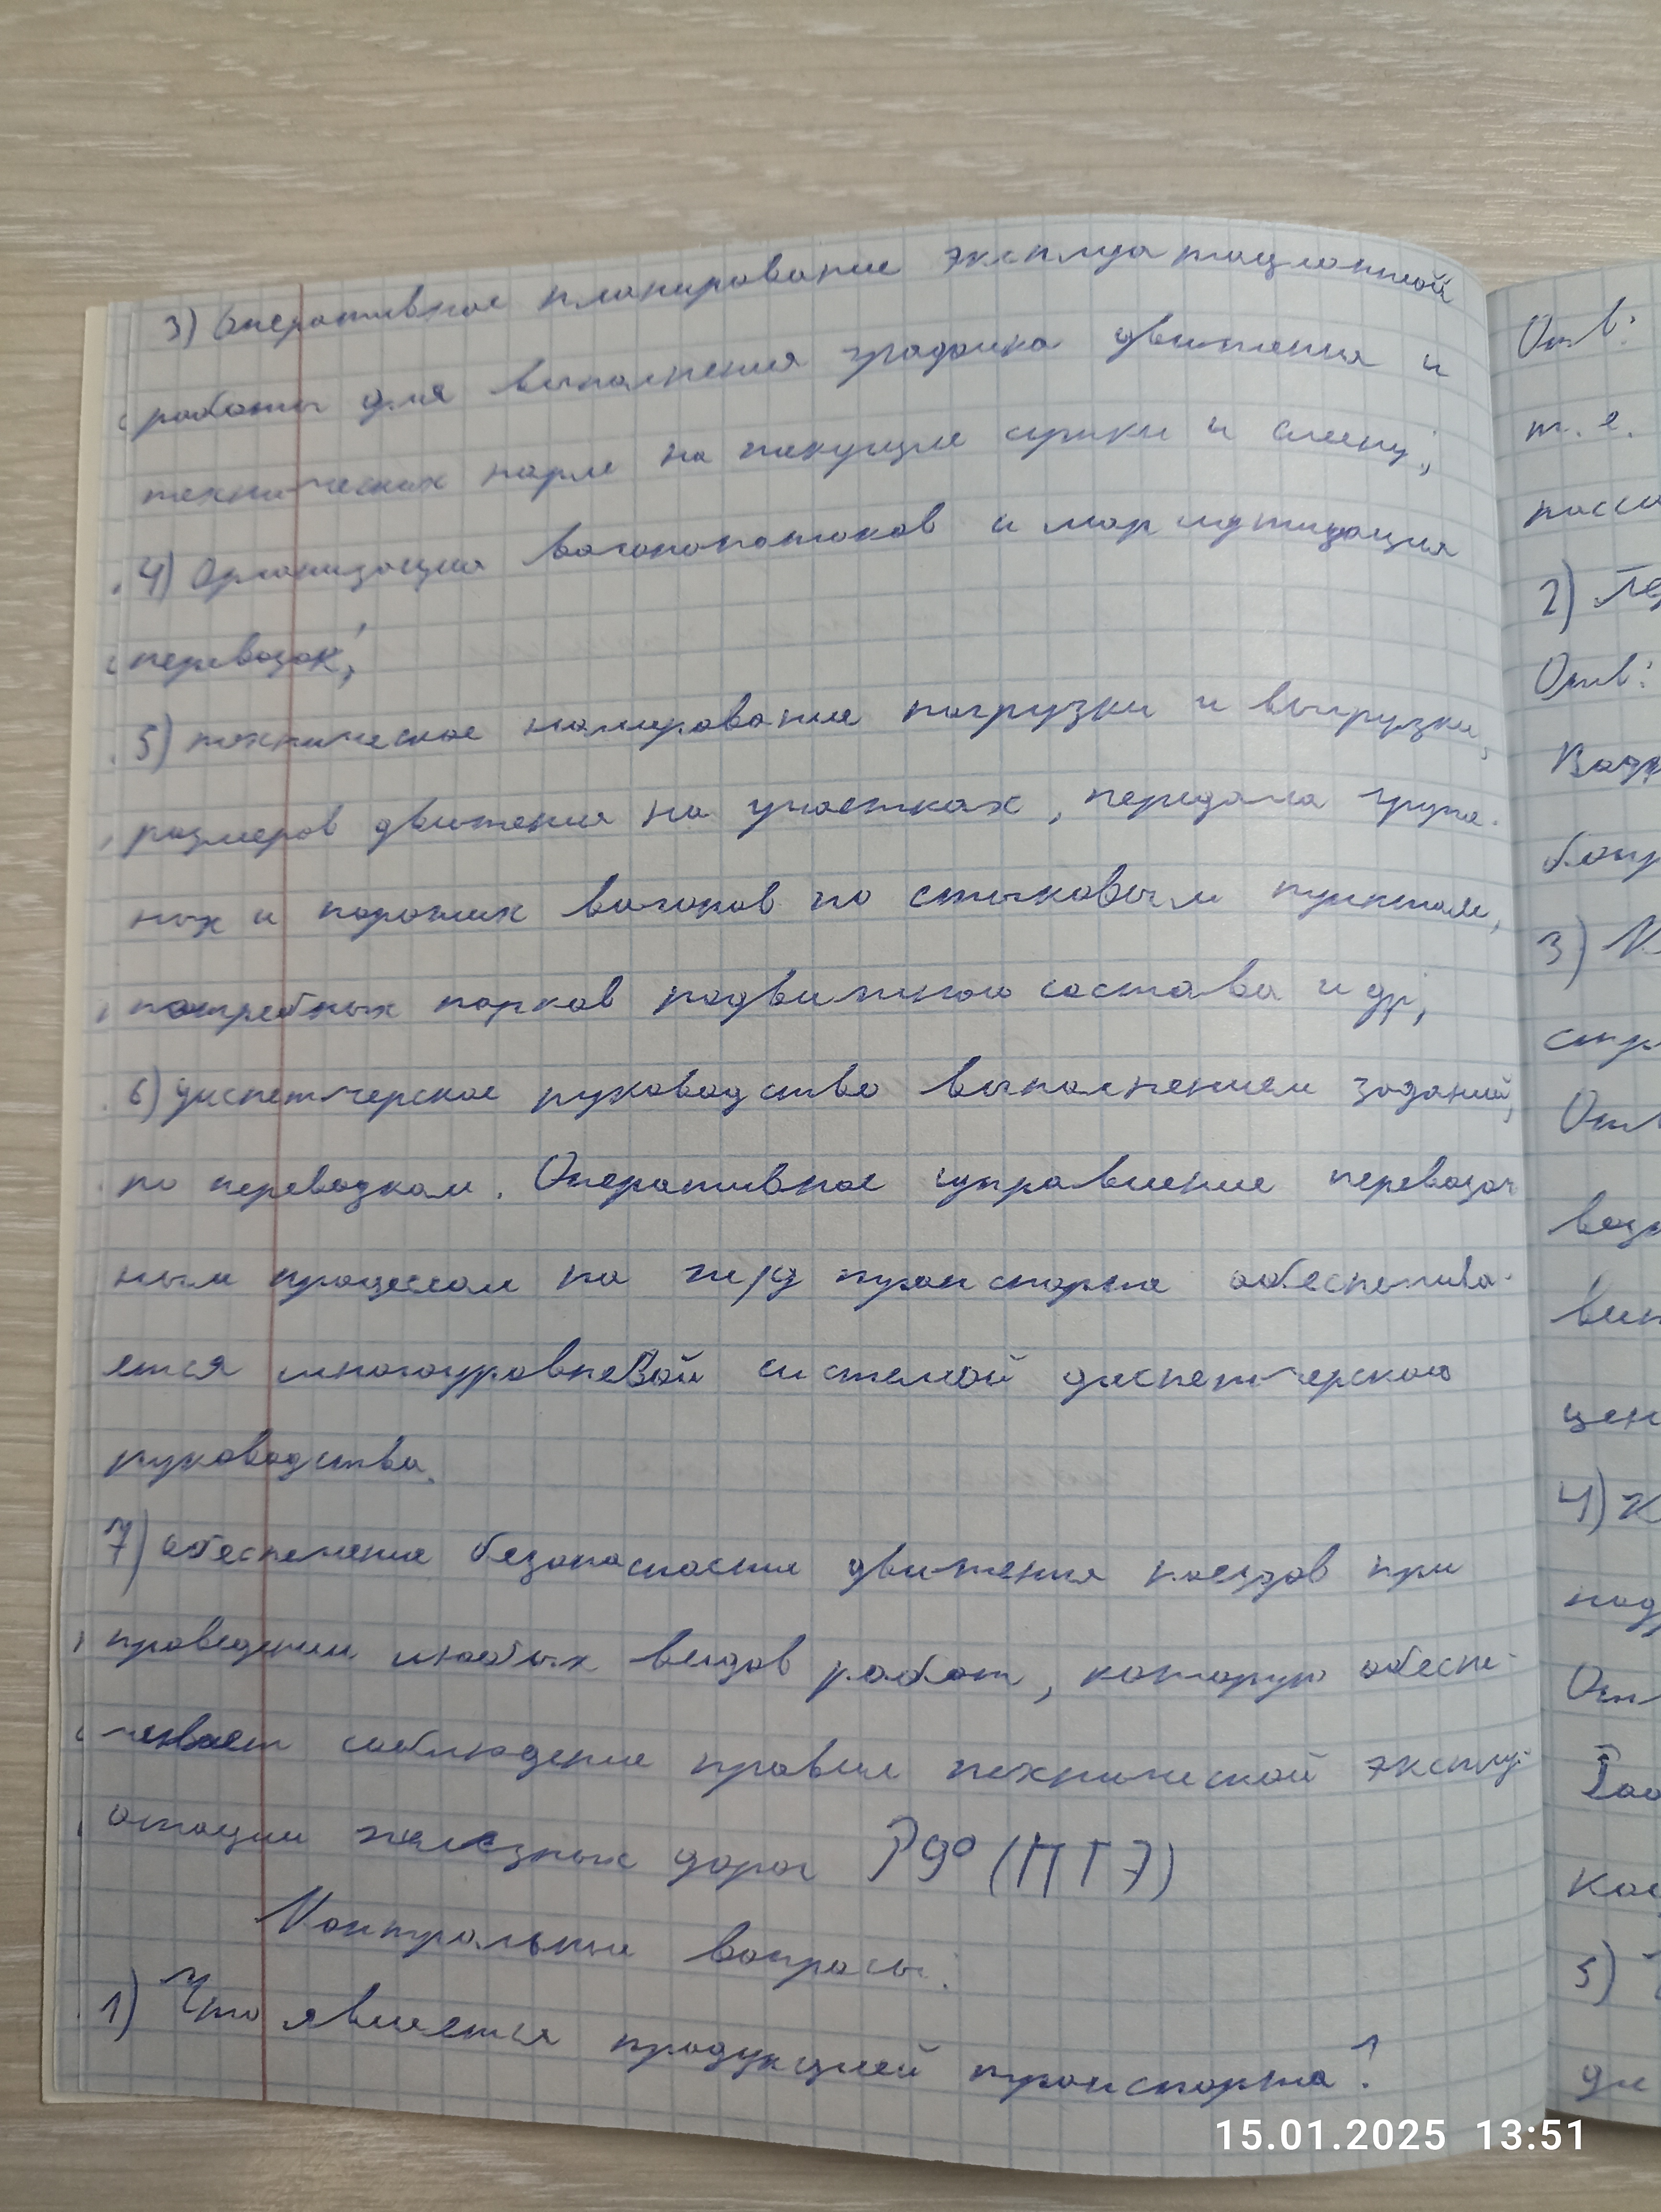 3) Оперативное планирование эксплуатационной
работы для выполнения графика движения и
технических норм на текущие сутки и смену;
4) Организация вагонопотоков и маршрутизация
перевозок;
5) техническое нормирование погрузки и выгрузки,
размеров движения на участках, передача груже-
ных и порожних вагонов по стыковым пунктам,
потребных парков подвижного состава и др;
6) диспетчерское руководство выполнением заданий,
по перевозкам. Оперативное управление перевозоч
ным процессом на ж/д транспорте обеспечива-
ется многоуровневой системой диспетчерского
руководства.
7) обеспечение безопасности движения поездов при
проведении любых видов работ, которую обеспе-
чивает соблюдение правил технической эксплу-
атации железных дорог РФ (ПТЭ)
Контрольные вопросы:
1) Что является продукцией транспорта?
Отв:
т. е.
2)
Отв:
3)
4)
5)
15.01.2025 13:51